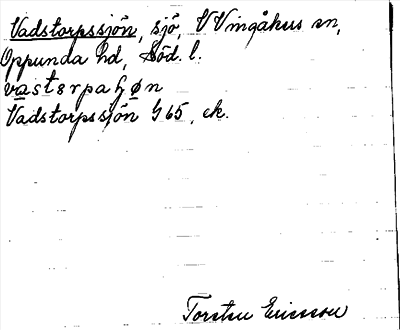 Vadstorpssjön, sjö, V Vingåkers sn,
Oppunda hd, Söd. l.
Vadstorpssjön G 65, ek.
Torsten Ericsson